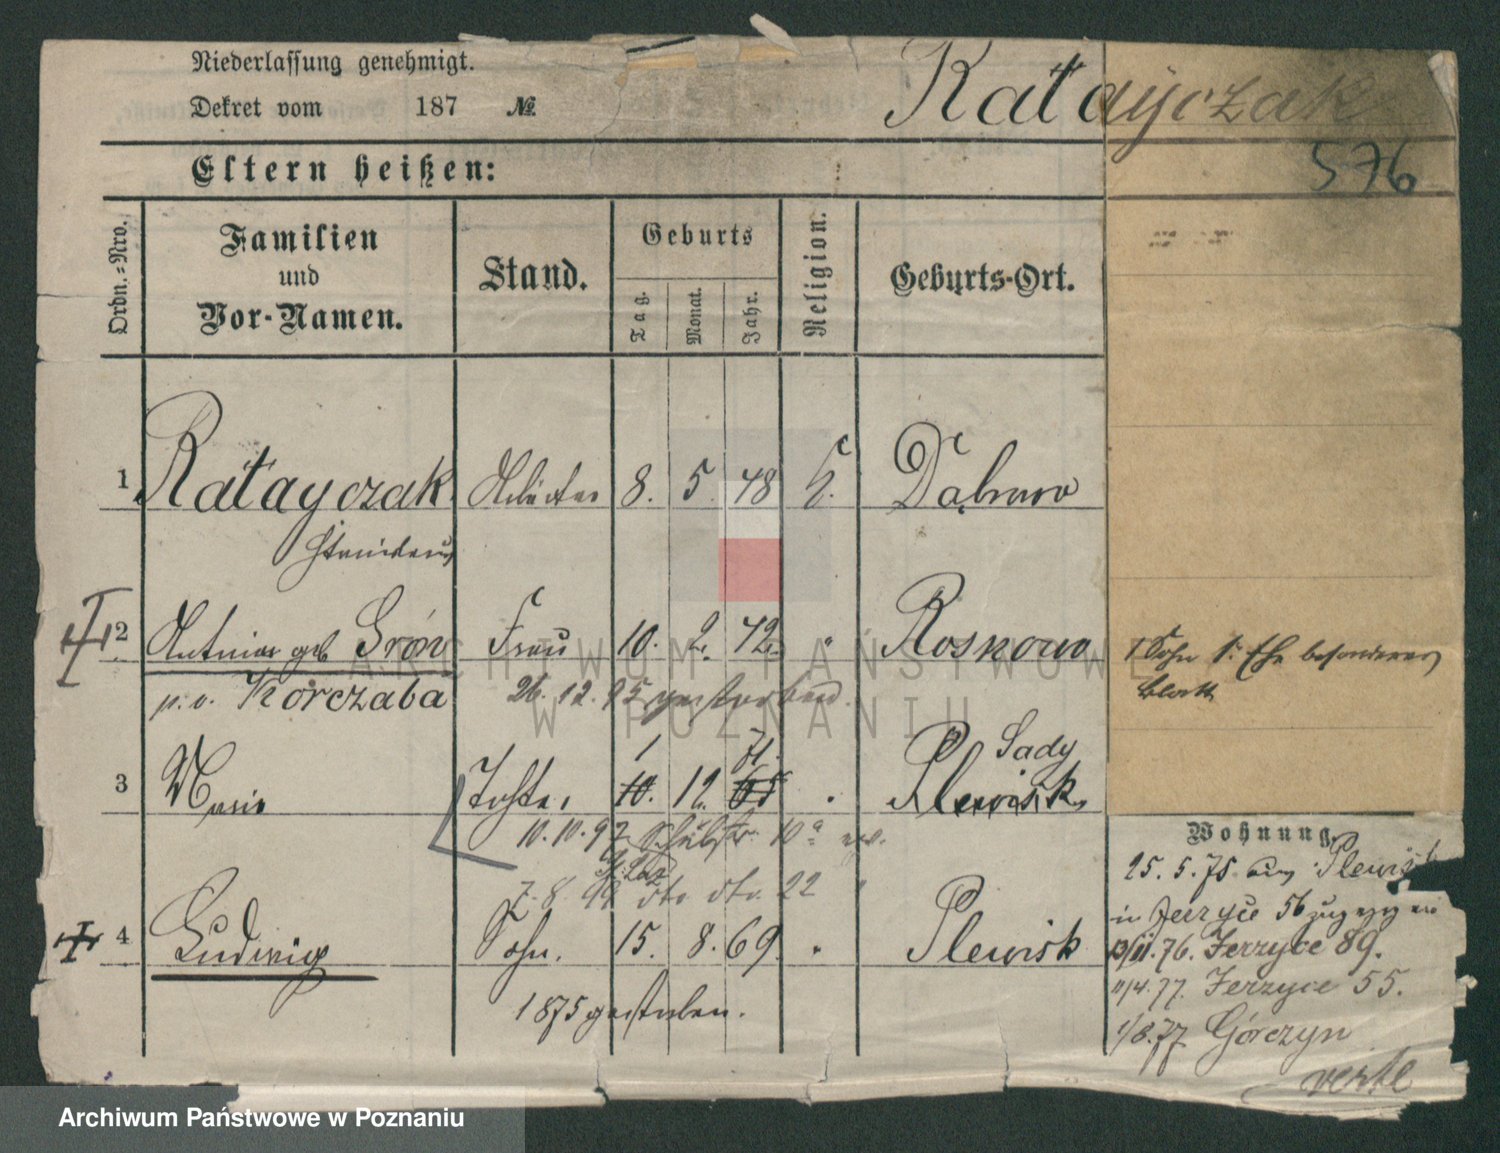 Niederlassung genehmigt.
Dekret vom 187 №
Ratajczak
576
Eltern heißen:
Ordn.=Nro.
Familien und Vor-Namen.
Stand.
Geburts
Tag.
Monat.
Jahr.
Religion.
Geburts-Ort.
1 Ratayczak Arbeiter 8. 5. 48 Dąbrowo
2 Antonina geb Groń Frau 10. 2. 42. " Rosnowo
p. v. Korczaba 26. 12. 95 gestorben.
1 71. Sady
3 Marie Tochter 10. 12. 65 " Plewisk
10. 10. 97 10a
7. 8. 99 dto dto. 22 "
4 Ludwig Sohn. 15. 8. 69. " Plewisk
1875 gestorben.
1 Sohn 1. Ehe besonderes
Blatt
Wohnung.
25. 5. 75 aus Plewisk
in Jerzyce 56 zugezogen
13/11. 76. Jerzyce 89.
11/4. 77. Jerzyce 55.
1/8. 77 Górczyn
verte
ARCHIWUM PAŃSTWOWE
W POZNANIU
Archiwum Państwowe w Poznaniu